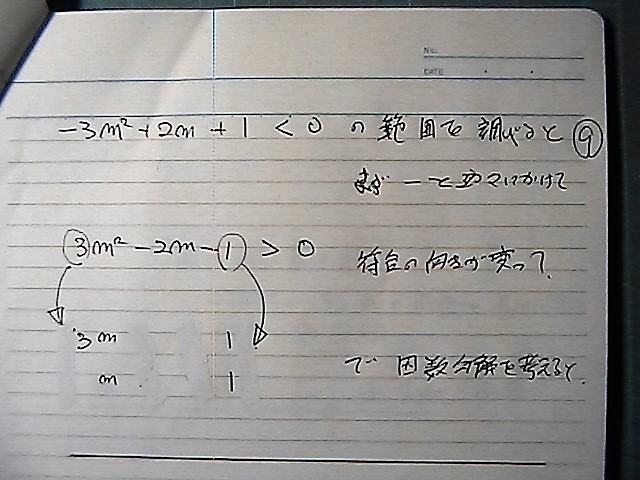 No.
DATE
-3m²+2m+1<0 の範囲で調べると ⑨
まず ーを両々にかけて
3m²-2m-1>0 符合の向きが変って、
3m 1
m 1
で 因数分解を考えると、